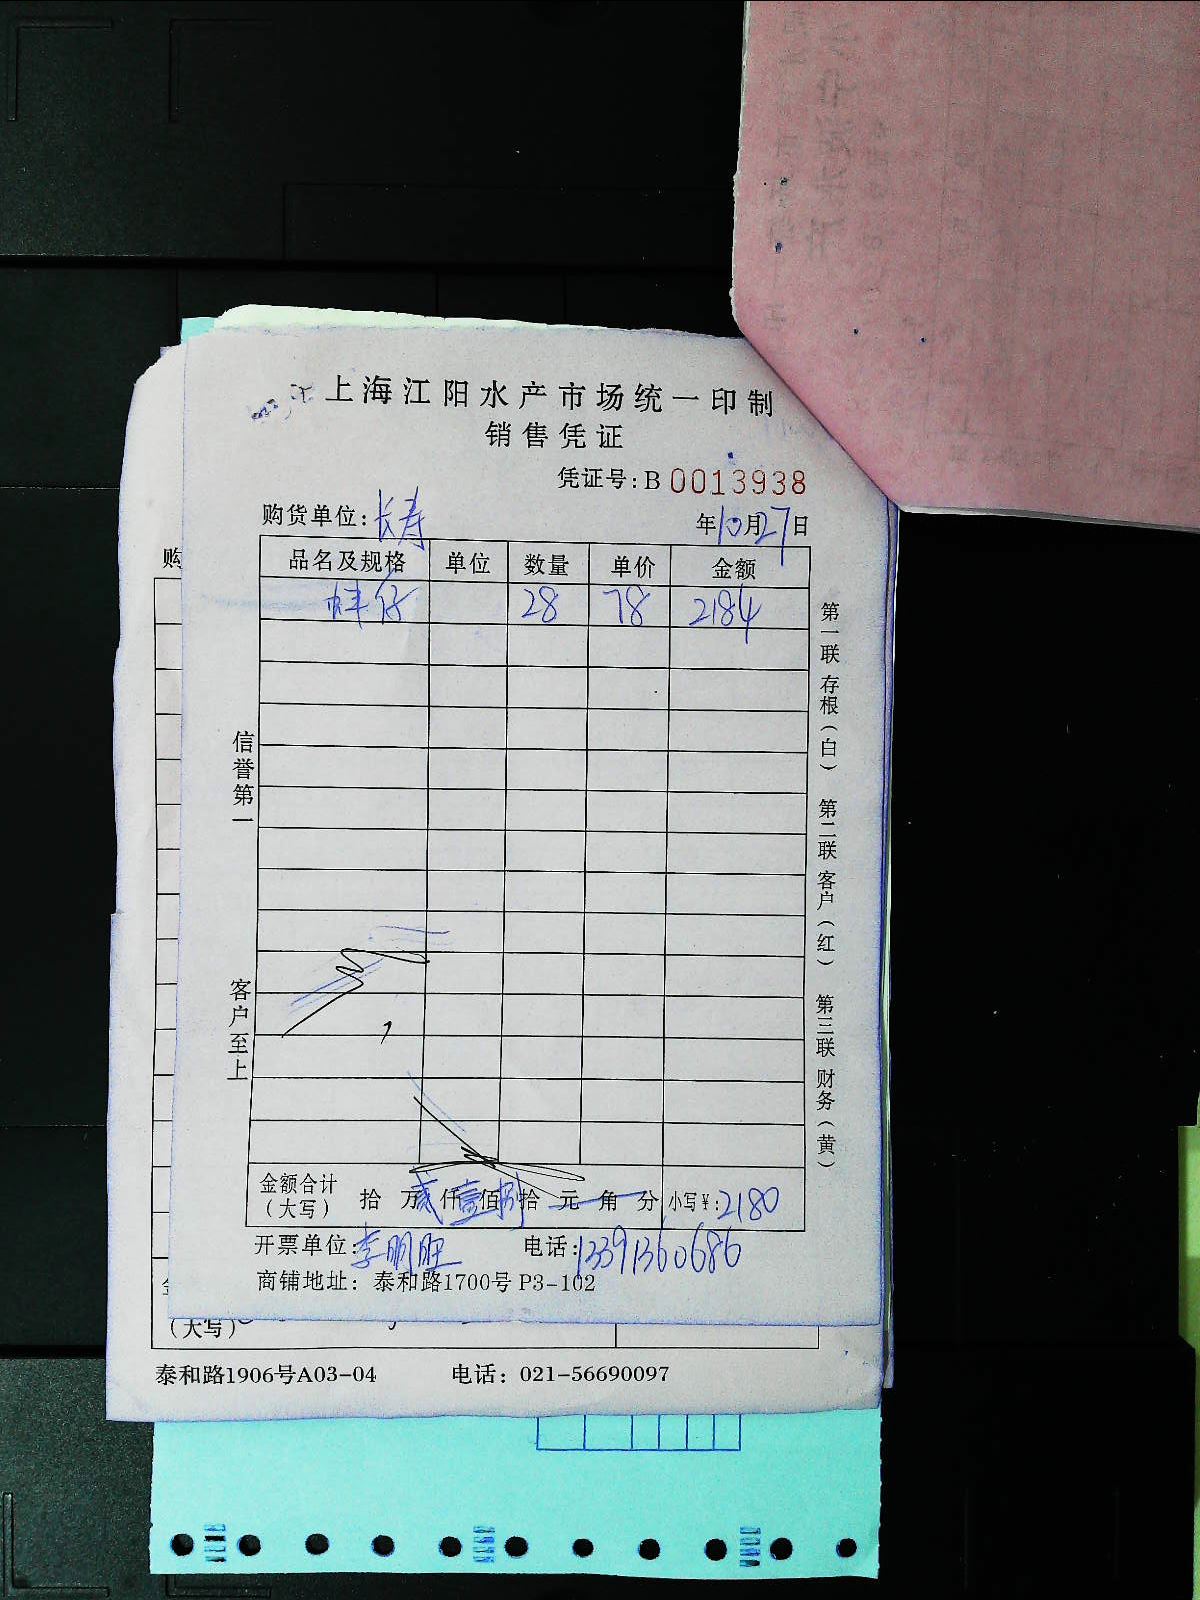 上海江阳水产市场统一印制
销售凭证
凭证号:B 0013938
购货单位:长寿 年10月27日
品名及规格 单位 数量 单价 金额
蚌仔 28 78 2184
信誉第一
客户至上
第一联 存根(白) 第二联 客户(红) 第三联 财务(黄)
金额合计(大写) 拾 万 贰仟 壹佰 捌拾 元 角 分 小写¥:2180
开票单位:李明旺 电话:13391360686
商铺地址: 泰和路1700号 P3-102
购
(大写)
泰和路1906号A03-04 电话: 021-56690097